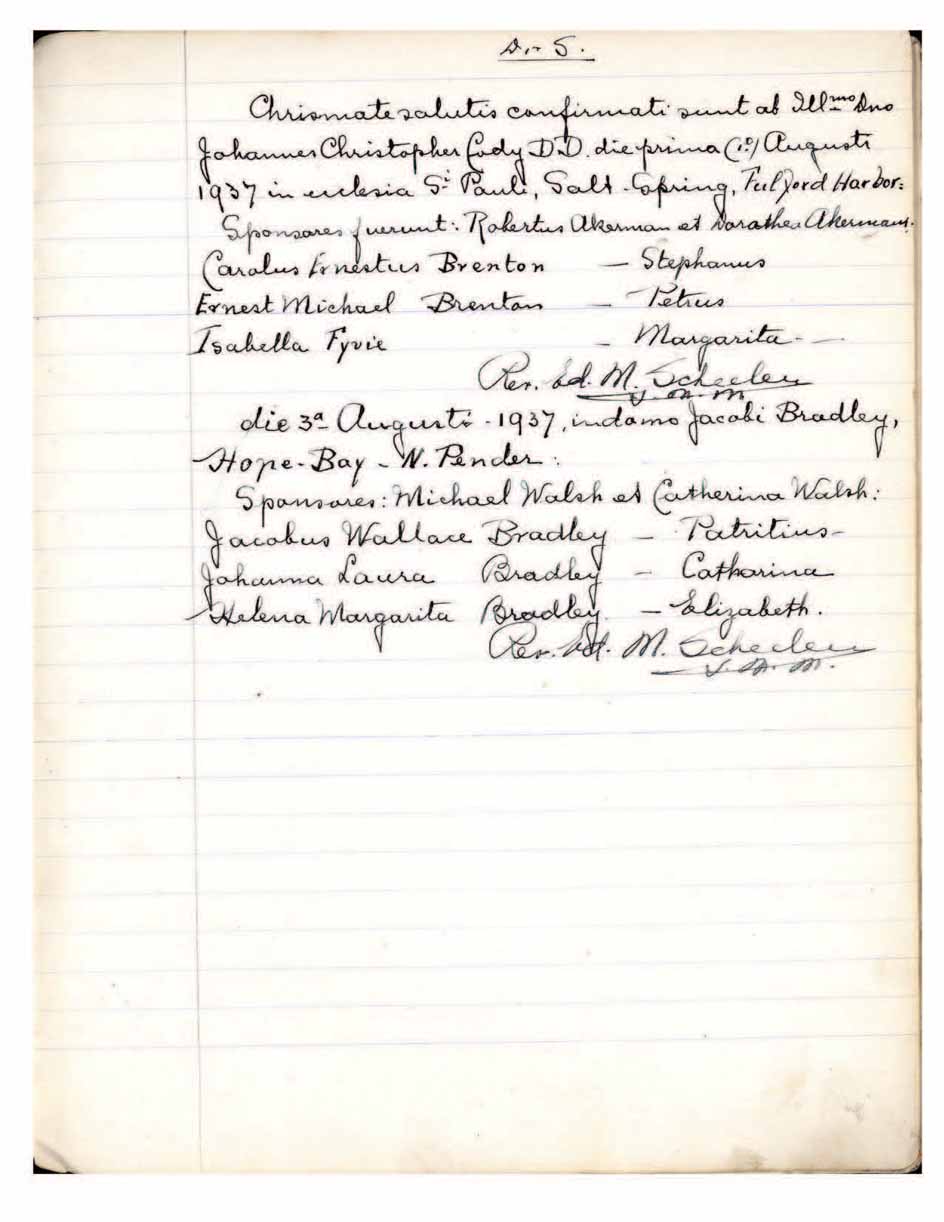 D.- S.
Chrismate salutis confirmati sunt ab Illmo Dno
Johannes Christopher Cody D.D. die prima (1º) Augusti
1937 in ecclesia Sti Pauli, Salt-Spring, Fulford Harbor:
Sponsores fuerunt: Robertus Akerman et Dorathea Akermans.
Carolus Ernestus Brenton — Stephanus
Ernest Michael Brenton — Petrus
Isabella Fyvie — Margarita —
Rev. Ed. M. Scheelen
S. M. M.
die 3a Augusti - 1937, in domo Jacobi Bradley,
Hope-Bay - N. Pender:
Sponsores: Michael Walsh et Catherina Walsh:
Jacobus Wallace Bradley — Patritius-
Johanna Laura Bradley — Catharina
Helena Margarita Bradley. — Elizabeth.
Rev. Ed. M. Scheelen
S. M. M.